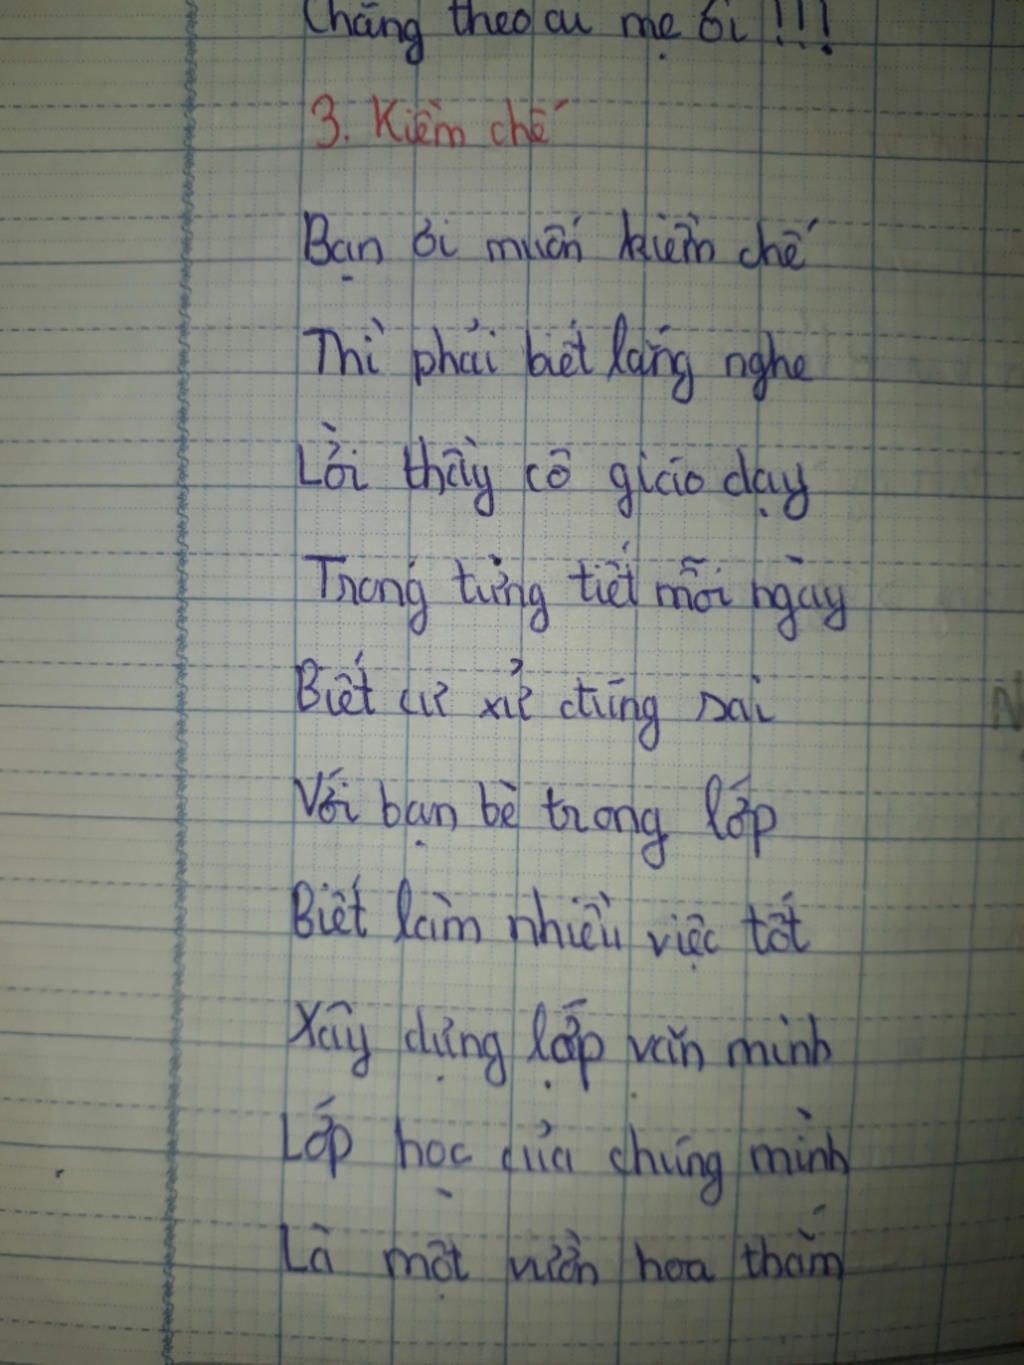 Chẳng theo ai mẹ ơi !!!
3. Kiềm chế
Bạn ơi muốn kiềm chế
Thì phải biết lắng nghe
Lời thầy cô giáo dạy
Trong từng tiết mỗi ngày
Biết cư xử đúng sai
Với bạn bè trong lớp
Biết làm nhiều việc tốt
Xây dựng lớp văn minh
Lớp học của chúng mình
Là một vườn hoa thắm